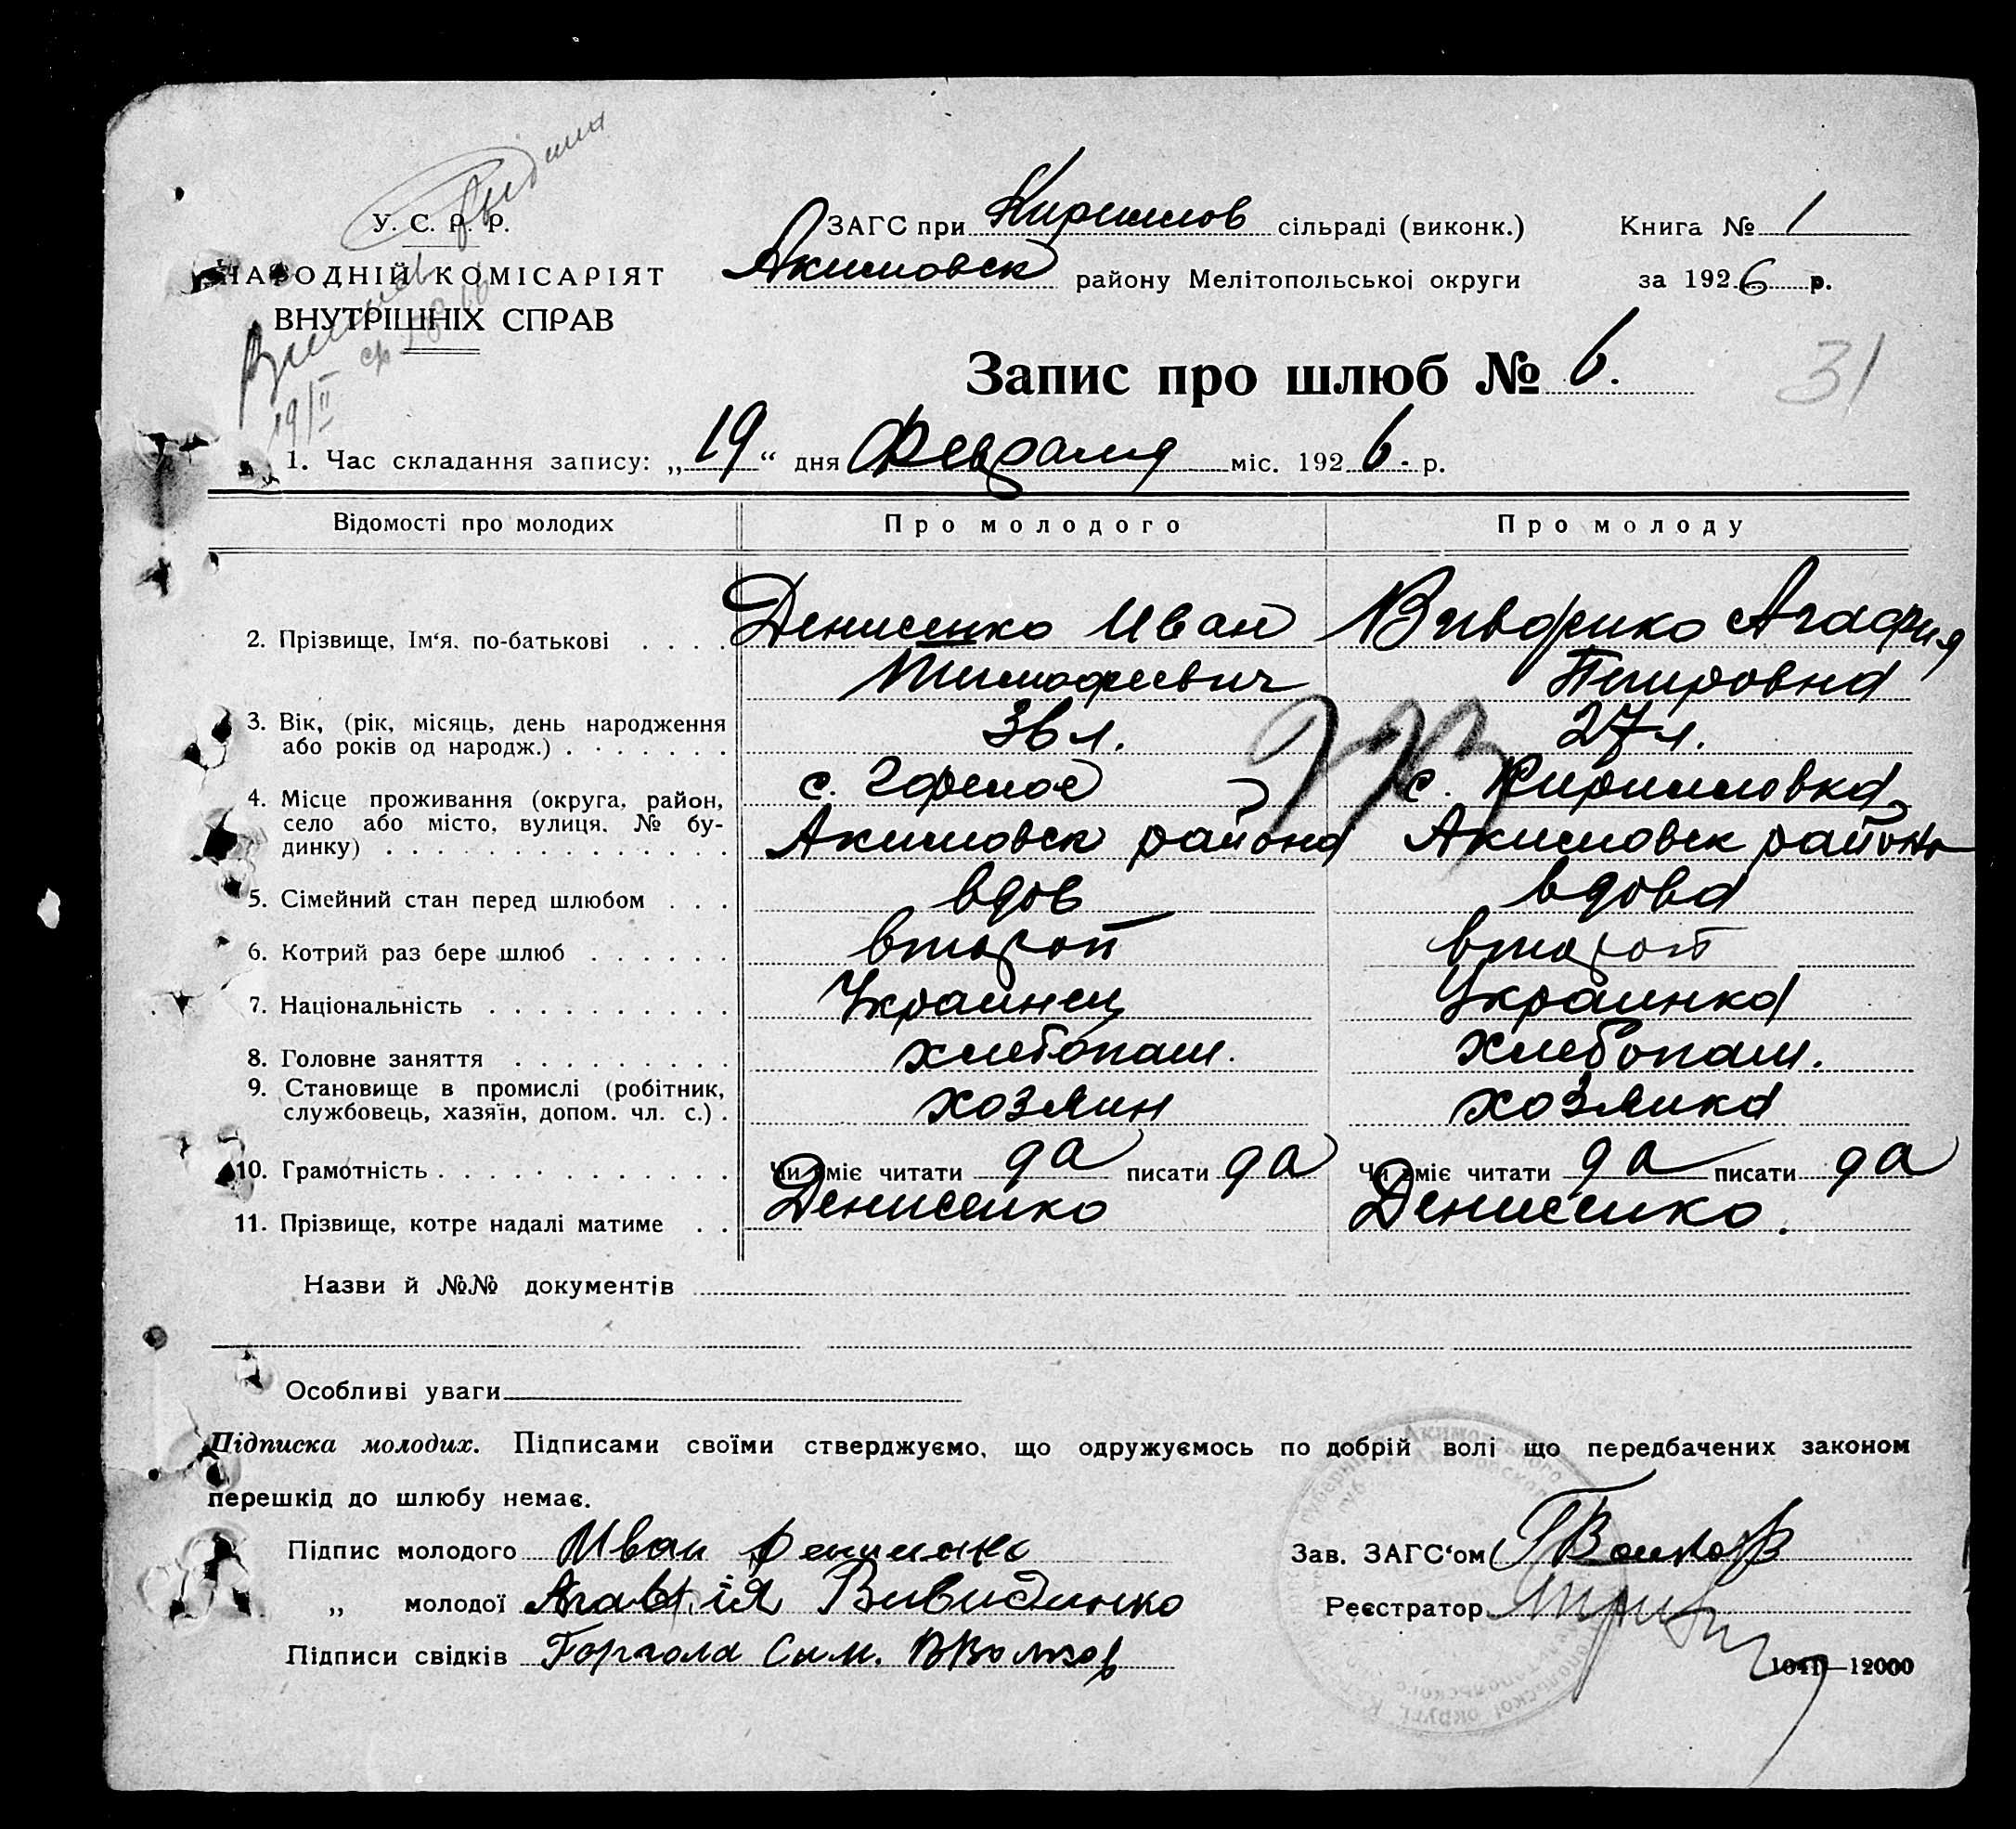 У. С. Р. Р.
НАРОДНІЙ КОМІСАРІЯТ
ВНУТРІШНІХ СПРАВ
19/II
ЗАГС при Кирилов сільраді (виконк.) Книга № 1
Акимовск району Мелітопольської округи за 1926 р.
Запис про шлюб № 6.
31
1. Час складання запису: „19“ дня Февраля міс. 1926. р.
Відомості про молодих Про молодого Про молоду
2. Прізвище, Ім‘я. по-батькові Денисенко Иван Агафия
Тимофеевич Петровна
3. Вік, (рік, місяць, день народження або років од народж.) 36 л. 27 л.
4. Місце проживання (округа, район, село або місто, вулиця. № будинку) с. с. Кирилловка
Акимовск района Акимовск района
5. Сімейний стан перед шлюбом вдов вдова
6. Котрий раз бере шлюб второй второй
7. Національність Украинец Украинка
8. Головне заняття хлебопаш. хлебопаш.
9. Становище в промислі (робітник, службовець, хазяїн, допом. чл. с.) хозяин хозяйка
10. Грамотність Чи вміє читати да писати да Чи вміє читати да писати да
11. Прізвище, котре надалі матиме Денисенко Денисенко.
Назви й №№ документів
Особливі уваги
Підписка молодих. Підписами своїми стверджуємо, що одружуємось по добрій волі що передбачених законом
перешкід до шлюбу немає.
Підпис молодого Иван
„ молодої Агафія
Підписи свідків Горгола Сим. Волков
Зав. ЗАГС‘ом
Реєстратор
1041—12000